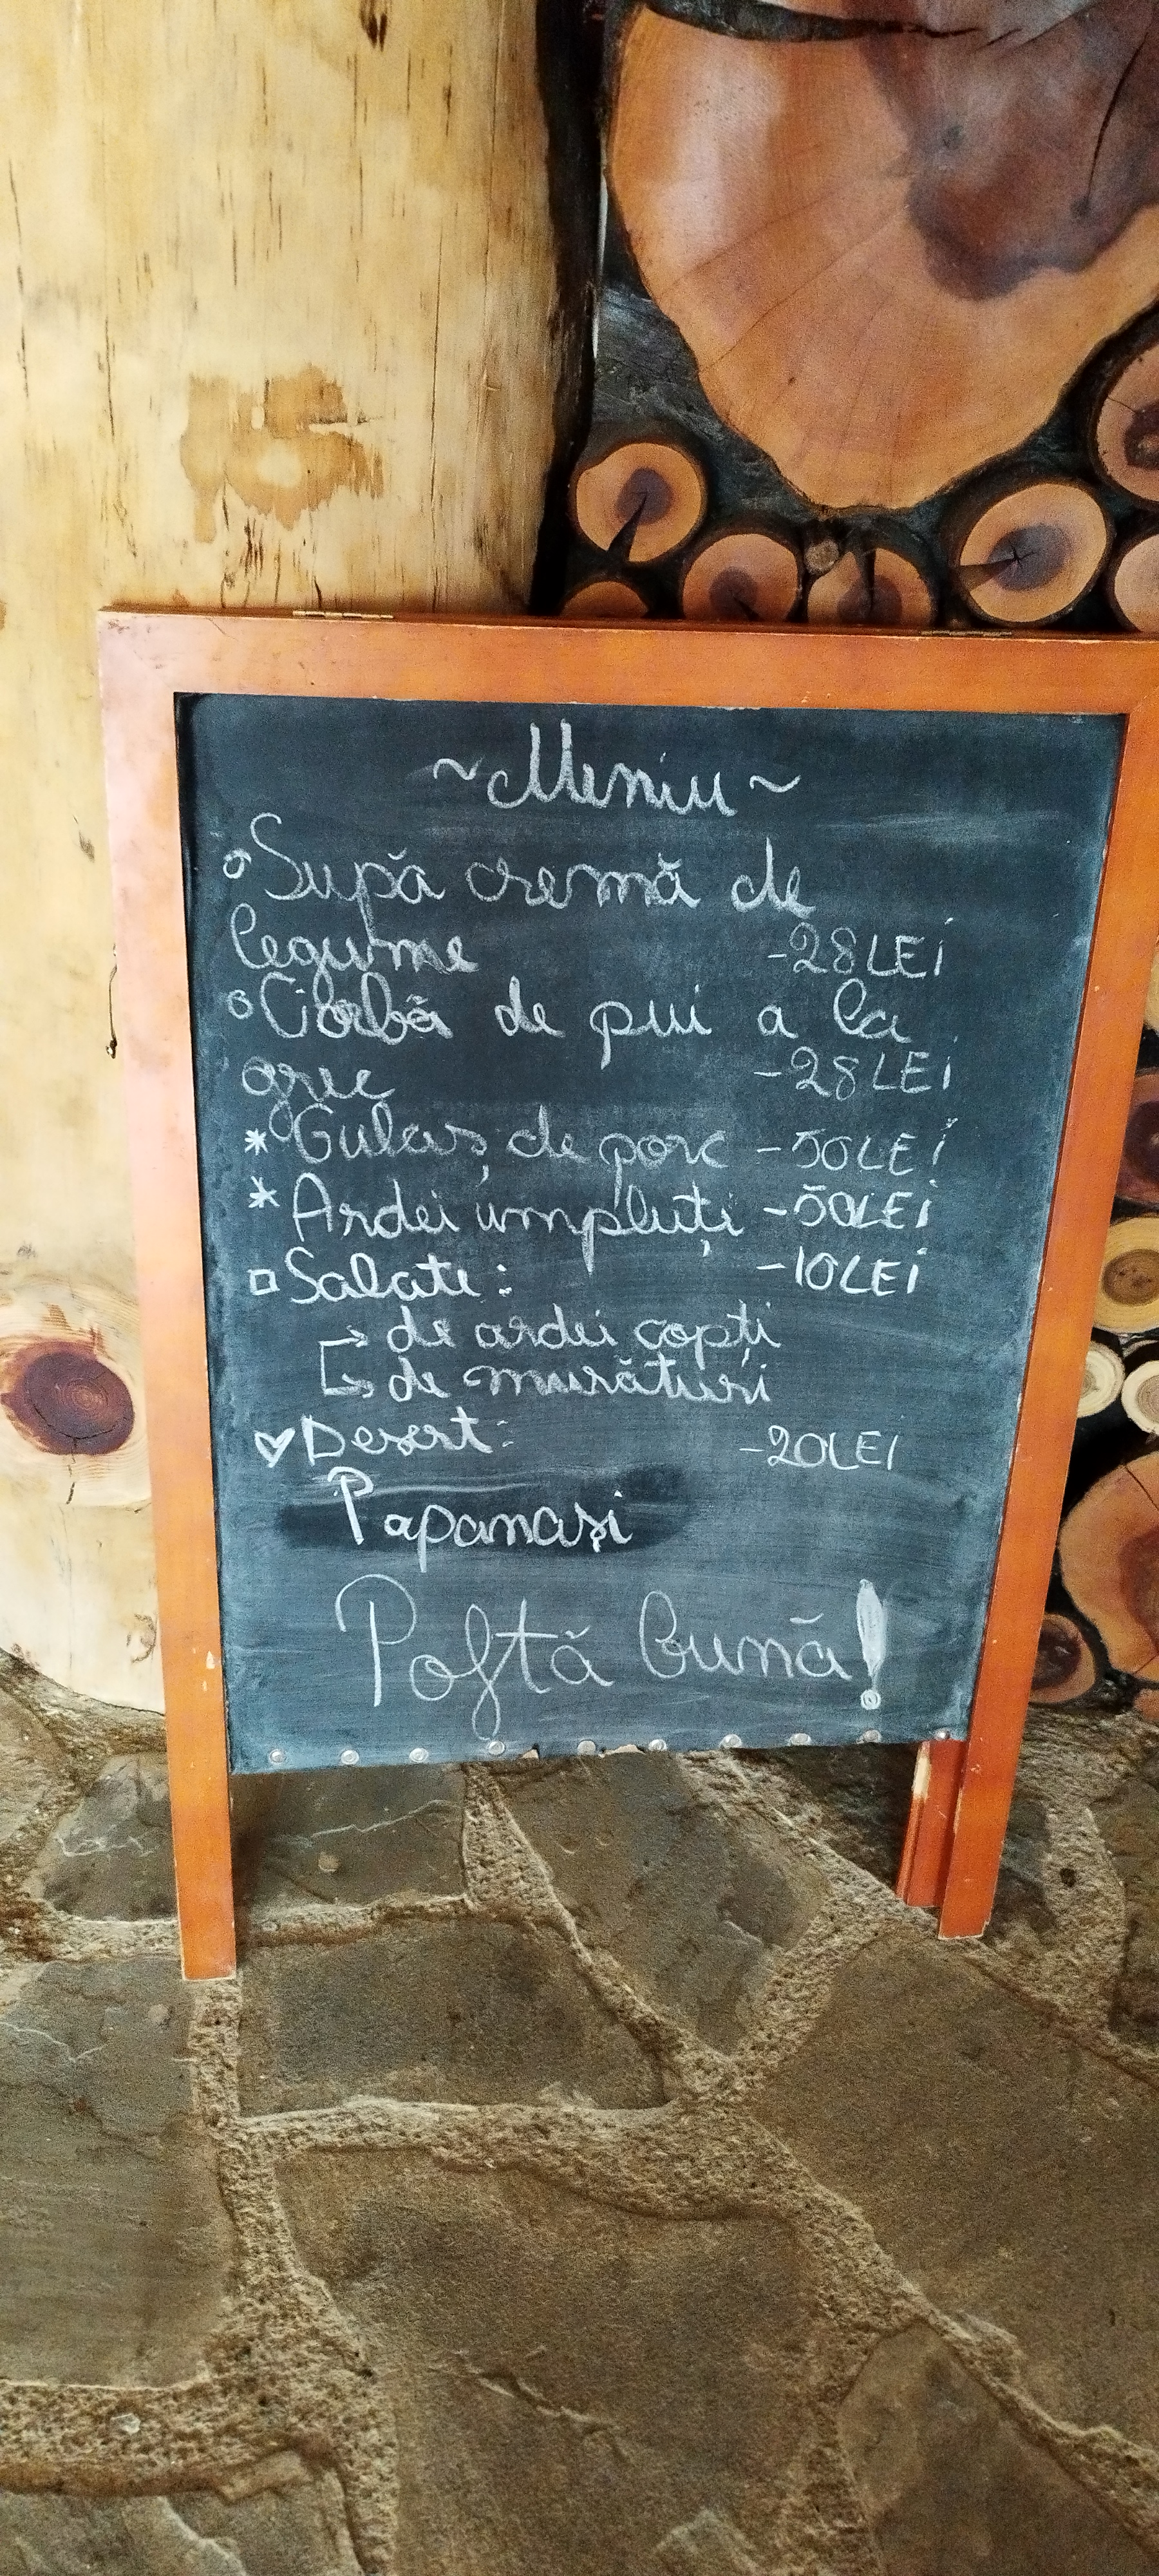 ~Meniu~
Supă cremă de
legume -28LEi
Ciorbă de pui a la
grec -28LEi
* Gulaș de porc -50LEi
* Ardei umpluți -50LEi
Salate: -10LEi
→ de ardei copți
↳ de murături
♡ Desert: -20LEI
Papanași
Poftă bună!